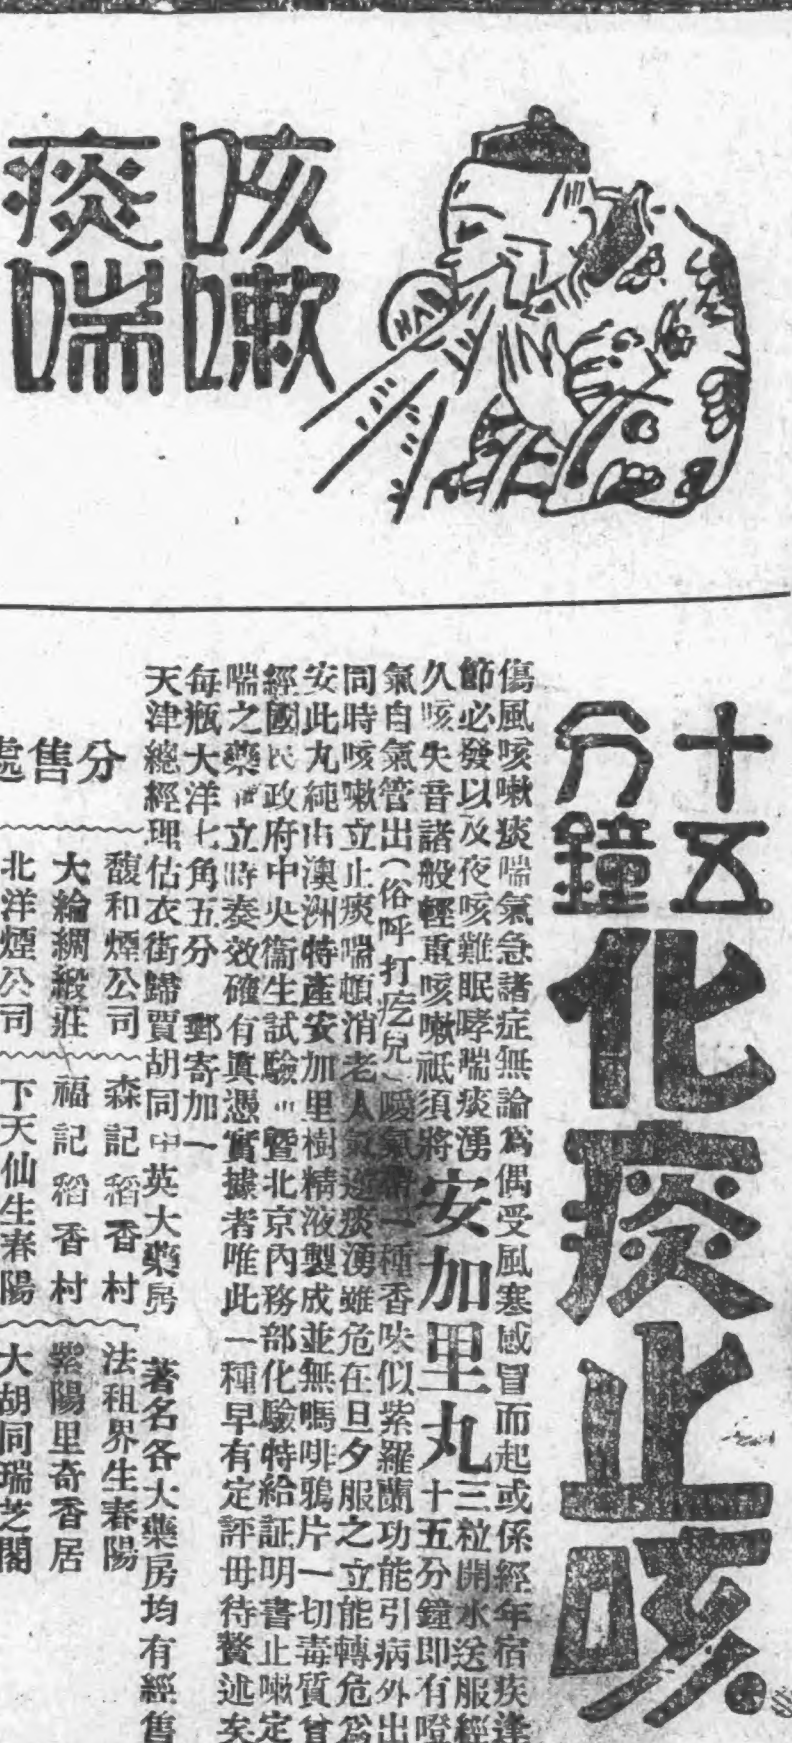 咳嗽
痰喘
HAD
十五
分鐘
化痰止咳
傷風咳嗽痰喘氣急諸症無論為偶受風寒感冒而起或係經年宿疾逢
節必發以及夜咳難眠哮喘痰湧
久咳失音諸般輕重咳嗽祗須將安加里丸三粒開水送服經
十五分鐘即有噔
氣自氣管出(俗呼打疙兒)噯氣帶一種香味似紫羅蘭功能引病外出
同時咳嗽立止痰喘頓消老人氣逆痰湧雖危在旦夕服之立能轉危為
安此丸純由澳洲特產安加里樹精液製成並無嗎啡鴉片一切毒質曾
經國民政府中央衞生試驗 暨北京內務部化驗特給証明書止嗽定
喘之藥 立時奏效確有眞憑實據者唯此一種早有定評毋待贅述矣
每瓶大洋七角五分 郵寄加一
天津總經理估衣街歸賈胡同中英大藥房 著名各大藥房均有經售
分售處
馥和煙公司 森記稻香村 法租界生春陽
大綸綢緞莊 福記稻香村 紫陽里奇香居
北洋煙公司 下天仙生春陽 大胡同瑞芝閣